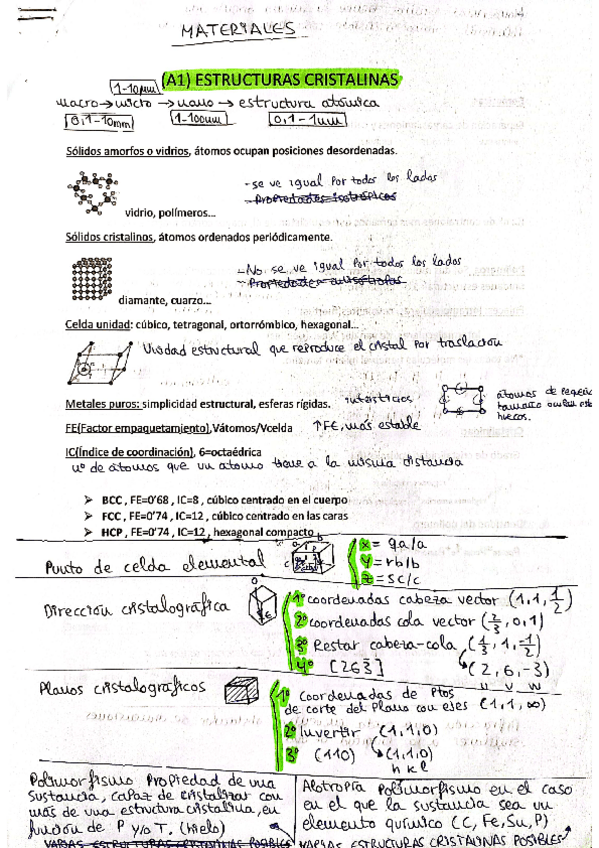 MATERIALES
(A1) ESTRUCTURAS CRISTALINAS
1-10μm
macro → micro → nano → estructura atómica
0,1-10mm 1-100nm 0,1-1nm
Sólidos amorfos o vidrios, átomos ocupan posiciones desordenadas.
- se ve igual por todos los lados
- Propiedades isotrópicas
vidrio, polímeros...
Sólidos cristalinos, átomos ordenados periódicamente.
- No se ve igual por todos los lados
- Propiedades anisótropas
diamante, cuarzo...
Celda unidad: cúbico, tetragonal, ortorrómbico, hexagonal...
Unidad estructural que reproduce el cristal por traslación
Metales puros: simplicidad estructural, esferas rígidas. intersticios
átomos de pequeño
tamaño
huecos.
FE(Factor empaquetamiento),Vátomos/Vcelda ↑FE, más estable
IC(Índice de coordinación), 6=octaédrica
nº de átomos que un átomo tiene a la misma distancia
➤ BCC , FE=0'68 , IC=8 , cúbico centrado en el cuerpo
➤ FCC , FE=0'74 , IC=12 , cúbico centrado en las caras
➤ HCP , FE=0'74 , IC=12 , hexagonal compacto
Punto de celda elemental
x = qa/a
y = rb/b
z = sc/c
Dirección cristalográfica
1º coordenadas cabeza vector (1,1,1/2)
2º coordenadas cola vector (2/3,0,1)
3º Restar cabeza-cola (1/3,1,-1/2)
4º [263̄] (2,6,-3)
u v w
Planos cristalográficos
1º Coordenadas de Ptos
de corte del Plano con ejes (1,1,∞)
2º Invertir (1,1,0)
3º (110) (1,1,0)
h k l
Polimorfismo Propiedad de una
sustancia, capaz de cristalizar con
más de una estructura cristalina, en
función de P y/o T. (hielo)
VARIAS ESTRUCTURAS CRISTALINAS POSIBLES
Alotropía Polimorfismo en el caso
en el que la sustancia sea un
elemento químico (C, Fe, Su, P)
VARIAS ESTRUCTURAS CRISTALINAS POSIBLES